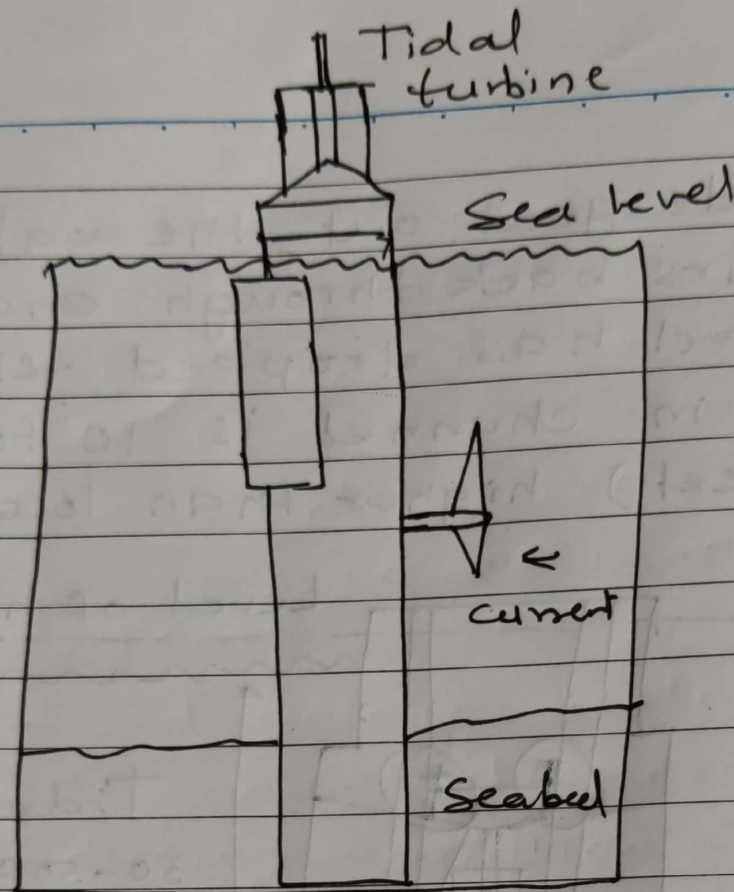 Tidal
turbine
Sea level
current
Seabed